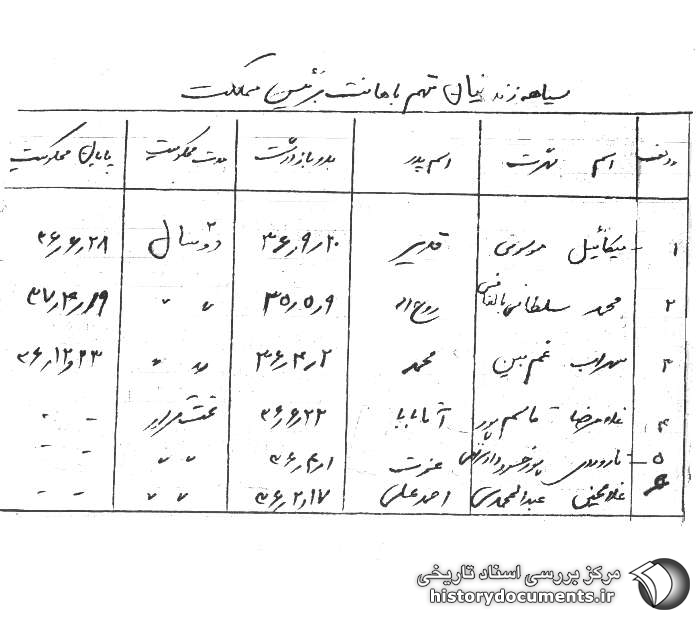 سیاهه زندانیان متهم باهانت برئیس مملکت
ردیف اسم شهرت اسم پدر بدو بازداشت مدت محکومیت پایان محکومیت
۱ میکائیل موسوی قدیر ۳۶٫۹٫۲۰ دو سال ۳۶٫۶٫۲۸
۲ محمد سلطانی روح اله ۳۵٫۵٫۹ " " ۳۷٫۴٫۱۹
۳ سهراب غم بین محمد ۳۶٫۴٫۲ " " ۳۶٫۱۲٫۲۳
۴ غلامرضا قاسم پور آقابابا ۳۶٫۶٫۲۲ تحت قرار - -
۵ عزت ۳۶٫۴٫۱ " " - -
۶ عبدالمحمدی احمد علی ۳۶٫۲٫۱۷ " " - -
مرکز بررسی اسناد تاریخی
historydocuments.ir